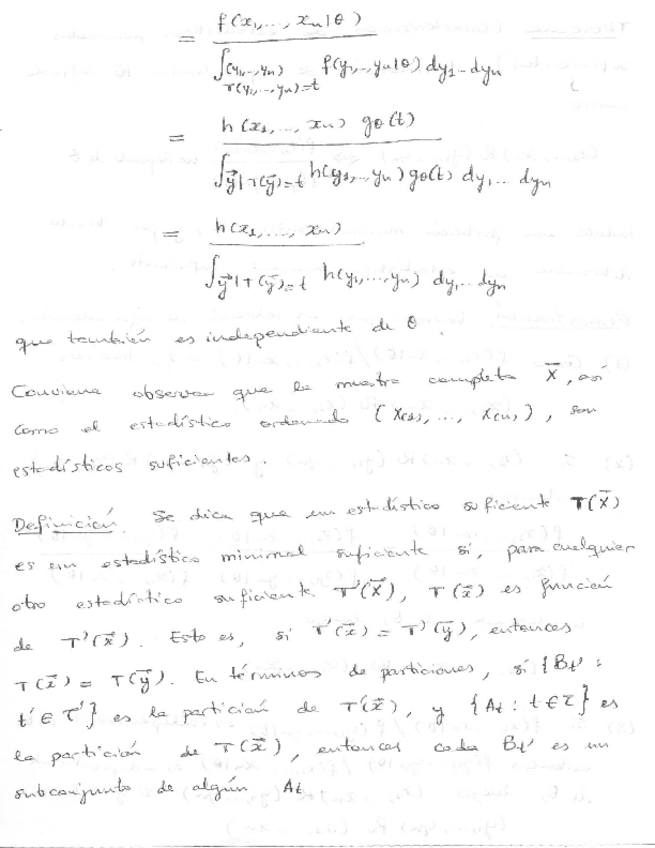 = f(x₁,..., xₙ|θ) / ∫(y₁,...,yₙ) T(y₁,...,yₙ)=t f(y₁,...,yₙ|θ) dy₁...dyₙ
= h(x₁,..., xₙ) gθ(t) / ∫y⃗|T(y⃗)=t h(y₁,...,yₙ) gθ(t) dy₁... dyₙ
= h(x₁,..., xₙ) / ∫y⃗|T(y⃗)=t h(y₁,...,yₙ) dy₁...dyₙ
que también es independiente de θ.
Conviene observar que la muestra completa X⃗, así
como el estadístico ordenado (X₍₁₎, ..., X₍ₙ₎), son
estadísticos suficientes.
Definición Se dice que un estadístico suficiente T(X⃗)
es un estadístico minimal suficiente si, para cualquier
otro estadístico suficiente T'(X⃗), T(x⃗) es función
de T'(x⃗). Esto es, si T'(x⃗) = T'(y⃗), entonces
T(x⃗) = T(y⃗). En términos de particiones, si {Bt' :
t' ∈ τ'} es la partición de T'(x⃗), y {At : t ∈ τ} es
la partición de T(x⃗), entonces cada Bt' es un
subconjunto de algún At